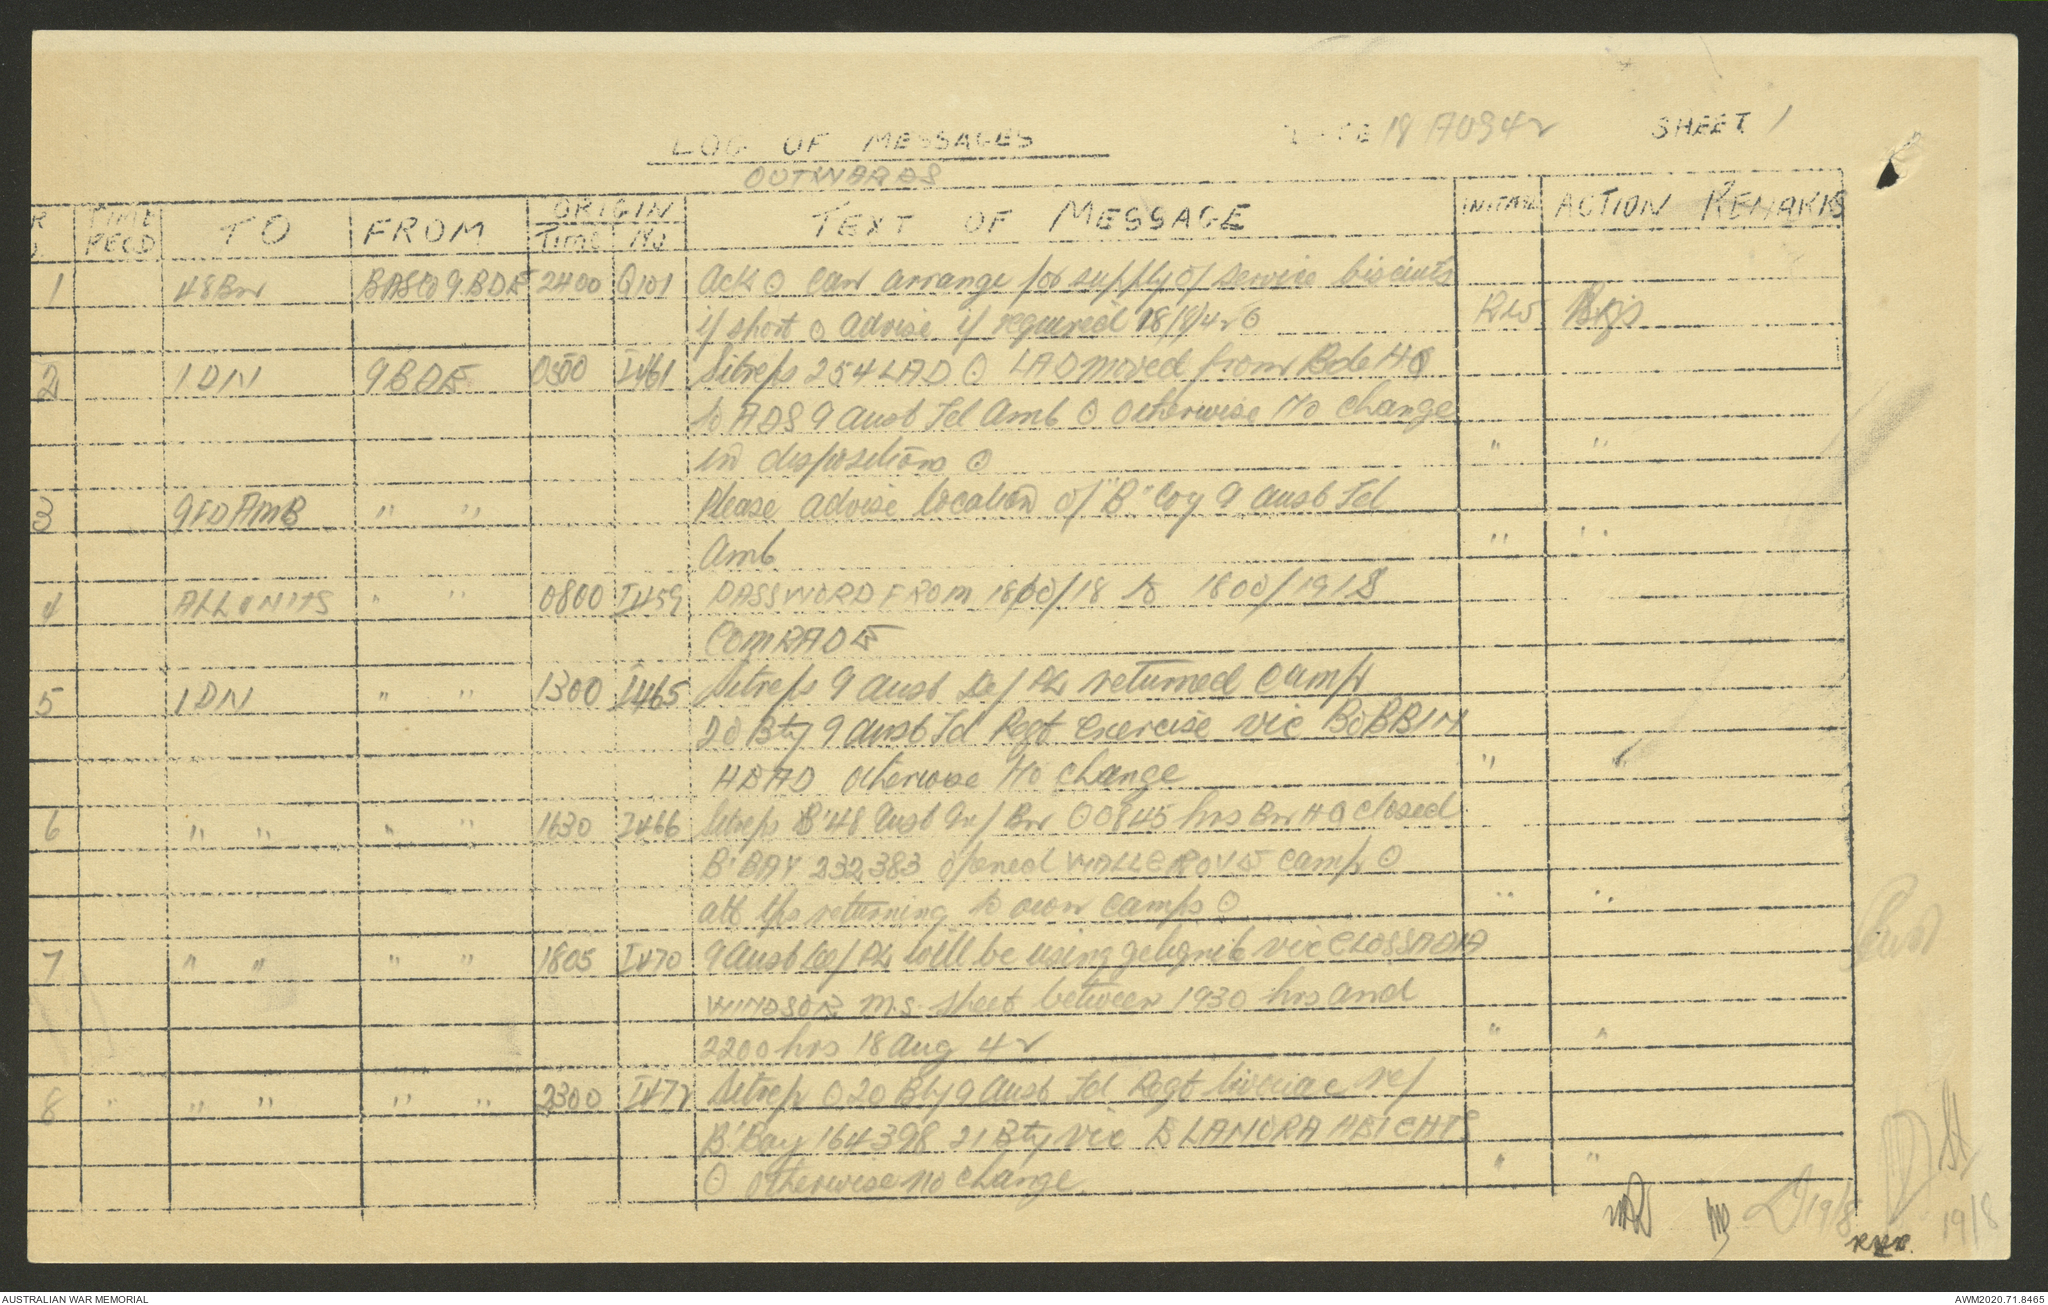 LOG OF MESSAGES DATE 18 AUG 42 SHEET 1
OUTWARDS
TIME RECD TO FROM ORIGIN TEXT OF MESSAGE INITIAL ACTION REMARKS
Time No
1 48 Bn BASCO 9 BDE 2400 Q101 Ack ⊙ Can arrange for supply of service biscuits
if short ⊙ Advise if required 18/8/42 ⊙ RW
2 1 DN 9 BDE 0500 I461 Sitreps 254 LAD ⊙ LAD moved from Bde HQ
to ADS 9 Aust Fd Amb ⊙ Otherwise no change
in dispositions ⊙ " "
3 9 FD AMB " " Please advise location of "B" Coy 9 Aust Fd
Amb " "
4 ALL UNITS " " 0800 I459 PASSWORD FROM 1800/18 to 1800/19 IS
COMRADE
5 1 DN " " 1300 I465 Sitreps 9 Aust Def Pln returned camp
20 Bty 9 Aust Fd Regt exercise vic BOBBIN
HEAD otherwise no change " "
6 " " " " 1630 I466 Sitreps B' 48 Aust Inf Bn ⊙ 0845 hrs Bn HQ closed
B' BAY 232383 opened WALLGROVE camp ⊙
att tps returning to own camps ⊙ " "
7 " " " " 1805 I470 9 Aust Def Pln will be using gelignite vic CLOSSADIA
WINDSOR M.S. sheet between 1930 hrs and
2200 hrs 18 Aug 42 " "
8 " " " " " 2300 I472 Sitrep ⊙ 20 Bty 9 Aust Fd Regt bivouac ref
B' Bay 164398 21 Bty vic ELANORA HEIGHTS
⊙ Otherwise no change " "
19/8 19/8
AUSTRALIAN WAR MEMORIAL AWM2020.71.8465